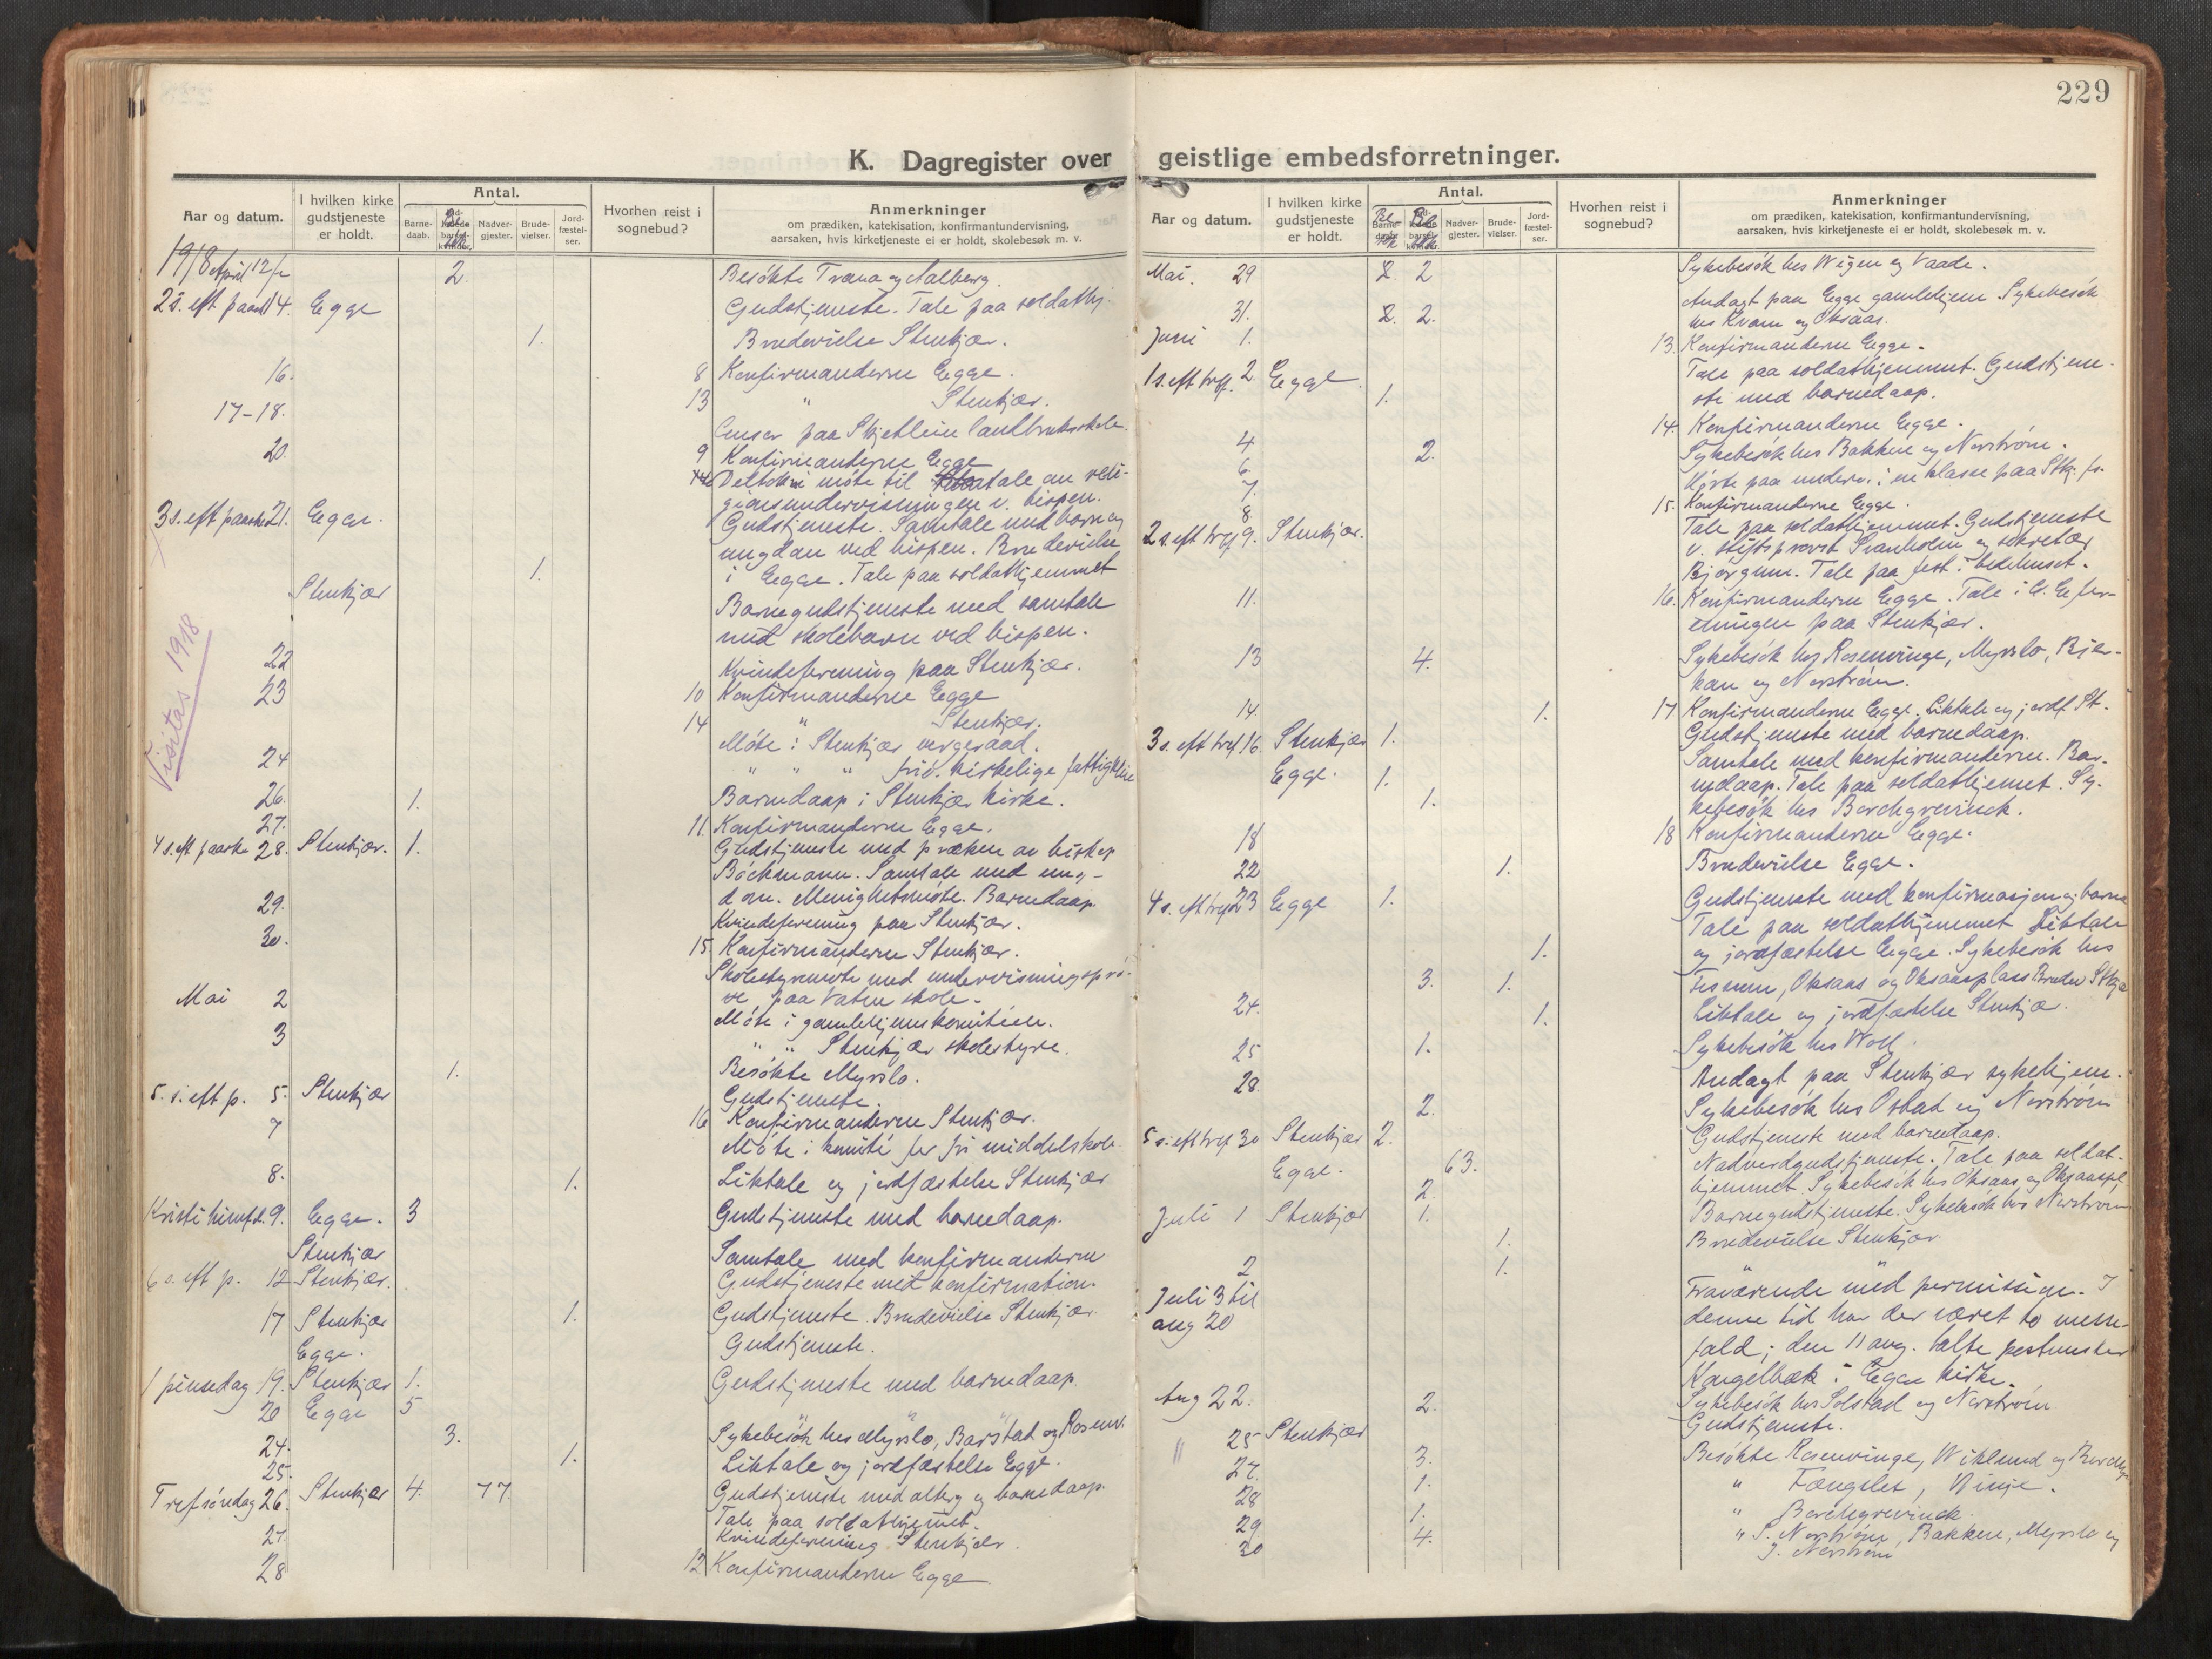 229
K. Dagregister over geistlige embedsforretninger.
Aar og datum.
I hvilken kirke gudstjeneste er holdt.
Antal.
Barne-daab.
Nadver-gjester.
Brude-vielser.
Jord-fæstel-ser.
Hvorhen reist i sognebud?
Anmerkninger
om prædiken, katekisation, konfirmantundervisning,
aarsaken, hvis kirketjeneste ei er holdt, skolebesøk m. v.
1918 April 12 2. Besökte Trana og Aalberg.
2 s. eft paaske 14. Egge Gudstjeneste. Tale paa soldathj.
1. Brudevielse Stenkjær.
16. 8 Konfirmanderne Egge.
13 " Stenkjær.
17-18. paa Skjetlein landbruksskole.
20. 9 Konfirmanderne Egge
Deltok i möte til samtale om reli-
gionsundervisningen v. bispen.
3 s. eft paaske 21. Egge. Gudstjeneste. Samtale med barn og
ungdom ved bispen. Brudevielse
1. i Egge. Tale paa soldathjemmet
Stenkjær Barnegudstjeneste med samtale
med skolebarn ved bispen.
Visitas 1918
22 Kvindeforening paa Stenkjær.
23 10 Konfirmanderne Egge
14 " Stenkjær.
Möte i Stenkjær vergeraad.
24 " " " kirkelige
26. 1. Barnedaap i Stenkjær kirke.
27. 11. Konfirmanderne Egge.
4 s. eft paaske 28. Stenkjær. 1. Gudstjeneste med præken av biskop
Böckmann. Samtale med ung-
dom. Menighetsmöte. Barnedaap.
29. Kvindeforening paa Stenkjær.
30. 15. Konfirmanderne Stenkjær.
Skolestyremöte med undervisningsprö-
ve paa skole.
Mai 2 Möte i gamlehjemskomiteen.
3 " " Stenkjær skolestyre.
1. Besökte Myrslo.
5. s. eft p. 5. Stenkjær Gudstjeneste.
7 16 Konfirmanderne Stenkjær.
Möte i komité for fri middelskole.
8. 1. Liktale og jordfæstelse Stenkjær
Kristi himfd. 9. Egge. 3 Gudstjeneste med barnedaap.
Stenkjær Samtale med konfirmanderne
6 s. eft p. 12 Stenkjær. Gudstjeneste med konfirmation.
17 Stenkjær 1. Gudstjeneste. Brudevielse Stenkjær.
Egge. Gudstjeneste.
1 pinsedag 19. Stenkjær 1. Gudstjeneste med barnedaap.
20 Egge 5 " " "
24. 3. Sykebesök hos Myrslo, Barstad og Rosenv.
25. 1. Liktale og jordfæstelse Egge.
Trefsöndag 26. Stenkjær 4. 77. Gudstjeneste med alterg og barnedaap.
Tale paa soldathjemet.
27. Kvindeforening Stenkjær.
28 12 Konfirmanderne Egge.
Aar og datum.
I hvilken kirke gudstjeneste er holdt.
Antal.
Nadver-gjester.
Brude-vielser.
Jord-fæstel-ser.
Hvorhen reist i sognebud?
Anmerkninger
om prædiken, katekisation, konfirmantundervisning,
aarsaken, hvis kirketjeneste ei er holdt, skolebesøk m. v.
Mai. 29 2 Sykebesök hos Wigen og Vaade.
Andagt paa Egge gamlehjem. Sykebesök
31. 2. hos Kvam og Oksaas.
Juni 1. 13. Konfirmanderne Egge.
1 s. eft tref. 2. Egge Tale paa soldathjemmet. Gudstjene-
1. ste med barnedaap.
4 14. Konfirmanderne Egge.
6. 2. Sykebesök hos Bakken og Norström.
7. Hörte paa underv. i en klasse paa Stkj. fs.
8. 15. Konfirmanderne Egge.
2 s. eft tref 9. Stenkjær. Tale paa soldathjemmet. Gudstjeneste
v. stiftsprovst Svanholm og sekretær
Björgum. Tale paa fest i bedehuset.
11. 16. Konfirmanderne Egge. Tale i for-
eningen paa Stenkjær.
13 4. Sykebesök hos Rosenvinge, Myrslo, Bjer-
kan og Norström.
14. 1. 17 Konfirmanderne Egge. Liktale og jordf St.
3 s. eft tref. 16. Stenkjær 1. Gudstjeneste med barnedaap.
Egge. 1. Samtale med konfirmanderne. Bar-
nedaap. Tale paa soldathjemet. Sy-
1. kebesök hos Borchgrevinck.
18 18 Konfirmanderne Egge.
22 1. Brudevielse Egge.
4 s. eft tref 23 Egge 1. Gudstjeneste med konfirmasjon og barne
Tale paa soldathjemmet Liktale
1. og jordfæstelse Egge. Sykebesök hos
3. 1. Oksaas og Oksaasplass
24. 1. Liktale og jordfæstelse Stenkjær.
25 1. Sykebesök hos Woll.
28. Andagt paa Stenkjær sykehjem.
2. Sykebesök hos Östad og Norström
5 s. eft tref 30 Stenkjær 2. Gudstjeneste med barnedaap.
Egge. 63. Nadverdgudstjeneste. Tale paa soldat-
2. hjemmet. Sykebesök hos Oksaas og Oksaaspl.
Juli 1 Stenkjær 1. Barnegudstjeneste. Sykebesök hos Norström
1. Brudevielse Stenkjær
2 1. " "
Juli 3 til Fraværende med permission. I
aug 20 denne tid har der været to messe-
fald; den 11 aug. talte
i Egge kirke.
Aug 22. 2. Sykebesök hos Solstad og Norström.
" 25 Stenkjær Gudstjeneste.
27. 3. Besökte Rosenvinge, Wiklund og
28 1. " Fængelet, Winje.
29 1. " Borchgrevinck.
30 4. " S. Norström, Bakken, Myrslo og
J. Norström